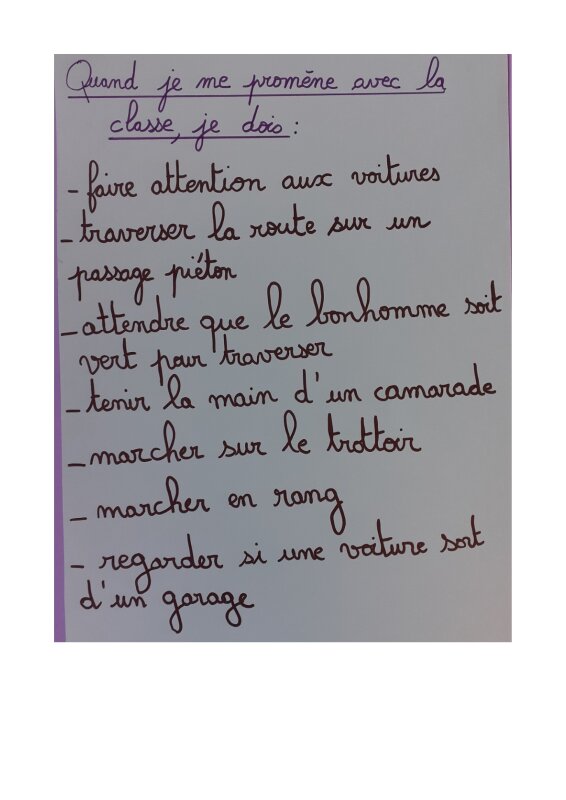 Quand je me promène avec la
classe, je dois :
- faire attention aux voitures
- traverser la route sur un
passage piéton
- attendre que le bonhomme soit
vert pour traverser
- tenir la main d'un camarade
- marcher sur le trottoir
- marcher en rang
- regarder si une voiture sort
d'un garage